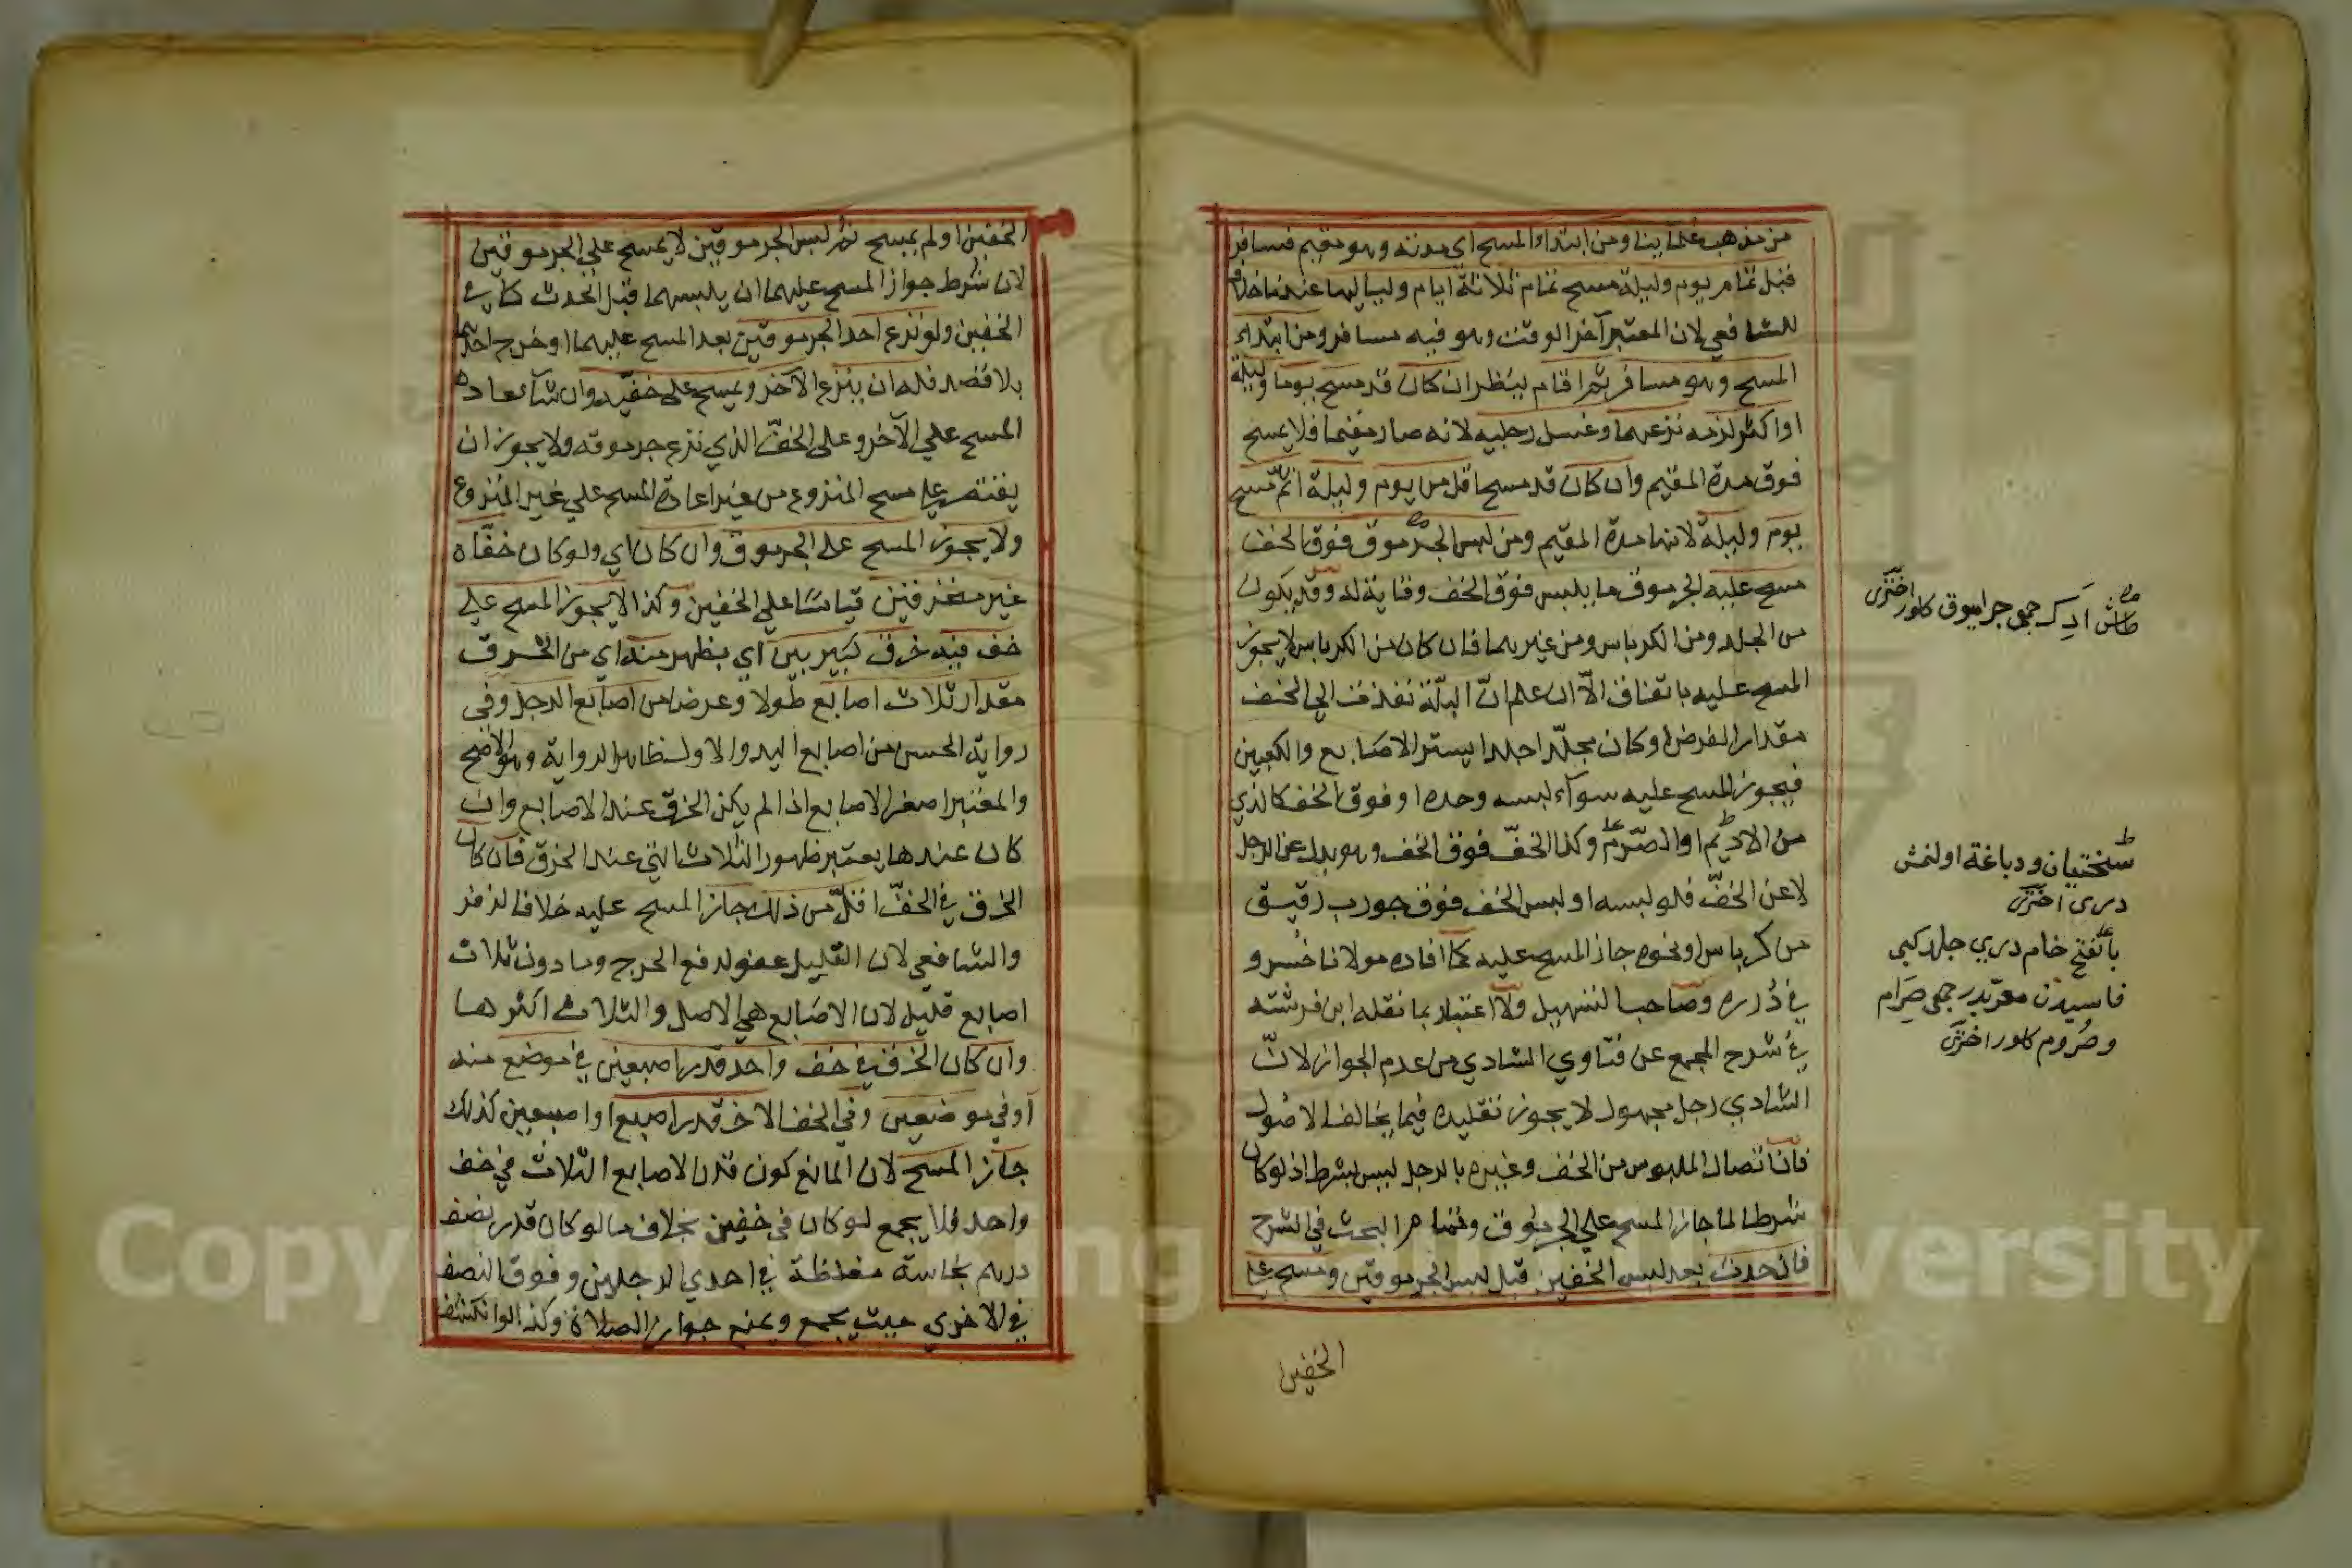 من مذهب علمائنا ومن ابتداء المسح اي مدته وهو مقيم فسافر
قبل تمام يوم وليلة مسح تمام ثلاثة ايام ولياليها عندنا خلافا
للشافعي لان المعتبر آخر الوقت وهو فيه مسافر ومن ابتداء
المسح وهو مسافر ثم اقام ينظر ان كان قد مسح يوما وليلة
او اكثر لزمه نزعهما وغسل رجليه لانه صار مقيما فلا يمسح
فوق مدة المقيم وان كان قد مسح اقل من يوم وليلة اتم مسح
يوم وليلة لانها مدة المقيم ومن لبس الجرموق فوق الخف
مسح عليه الجرموق ما يلبس فوق الخف وقاية له وقد يكون
من الجلد ومن الكرباس ومن غيرهما فان كان من الكرباس لا يجوز
المسح عليه باتفاق الّا ان علم انّ البلّة نفذت الي الخف
مقدار الفرض او كان مجلّدا جلدا يستر الاصابع والكعبين
فيجوز المسح عليه سوآء لبسه وحده او فوق الخف كالذي
من الاديم او الصرم وكذا الخفّ فوق الخف وهو بدل عن الرجل
لا عن الخفّ فلو لبسه او لبس الخف فوق جورب رقيق
من كرباس او نحوه جاز المسح عليه كما افاده مولانا خسرو
في درره وصاحب التسهيل ولا اعتبار بما نقله ابن فرشته
في شرح المجمع عن فتاوي الشادي من عدم الجواز لانّ
الشادي رجل مجهول لا يجوز تقليده فيما يخالف الاصول
فان اتصال الملبوس من الخف وغيره بالرجل ليس بشرط اذ لو كان
شرطا لما جاز المسح علي الجرموق وتمام البحث في الشرح
فان حدث بعد لبس الخفين قبل لبس الجرموقين ومسح علي
الخفين
جمي جراميق كلور اخترى
سختيان و دباغة اولنمش
دري اخترى
بالفتح خام دري جلد كبي
فاسيدن معربدر جمي صرام
وصروم كلور اخترى
الخفين او لم يمسح ثم لبس الجرموقين لا يمسح علي الجرموقين
لان شرط جواز المسح عليهما ان يلبسهما قبل الحدث كما في
الخفين ولو نزع احد الجرموقين بعد المسح عليهما او خرج احدهما
بلا قصد فله ان ينزع الآخر ويمسح علي خفّيه وان شآء عاد
المسح علي الآخر وعلي الخفّ الذي نزع جرموقه ولا يجوز ان
يقتصر علي مسح المنزوع من غير اعادة المسح علي غير المنزوع
ولا يجوز المسح علي الجرموق وان كان اي ولو كان خفّاه
غير منخرقين قياسا علي الخفين وكذا لا يجوز المسح علي
خف فيه خرق كبير بين اي يظهر منه اي من الخرق
مقدار ثلاث اصابع طولا وعرضا من اصابع الرجل وفي
رواية الحسن من اصابع اليد والاول ظاهر الرواية وهو الاصح
والمعتبر اصغر الاصابع اذا لم يكن الخرق عند الاصابع وان
كان عندها يعتبر ظهور الثلاث التي عند الخرق فان كان
الخرق في الخفّ اقلّ من ذلك جاز المسح عليه خلافا لزفر
والشافعي لان القليل عفو لدفع الحرج وما دون ثلاث
اصابع قليل لان الاصابع هي الاصل والثلاث اكثرها
وان كان الخرق في خف واحد قدر اصبعين في موضع منه
او في موضعين وفي الخف الآخر قدر اصبع او اصبعين كذلك
جاز المسح لان المانع كون قدر الاصابع الثلاث في خف
واحد فلا يجمع لو كان في خفين بخلاف ما لو كان قدر نصف
درهم نجاسة مغلظة في احدي الرجلين وفوق النصف
في الاخري حيث يجمع ويمنع جواز الصلاة وكذا لو انكشف